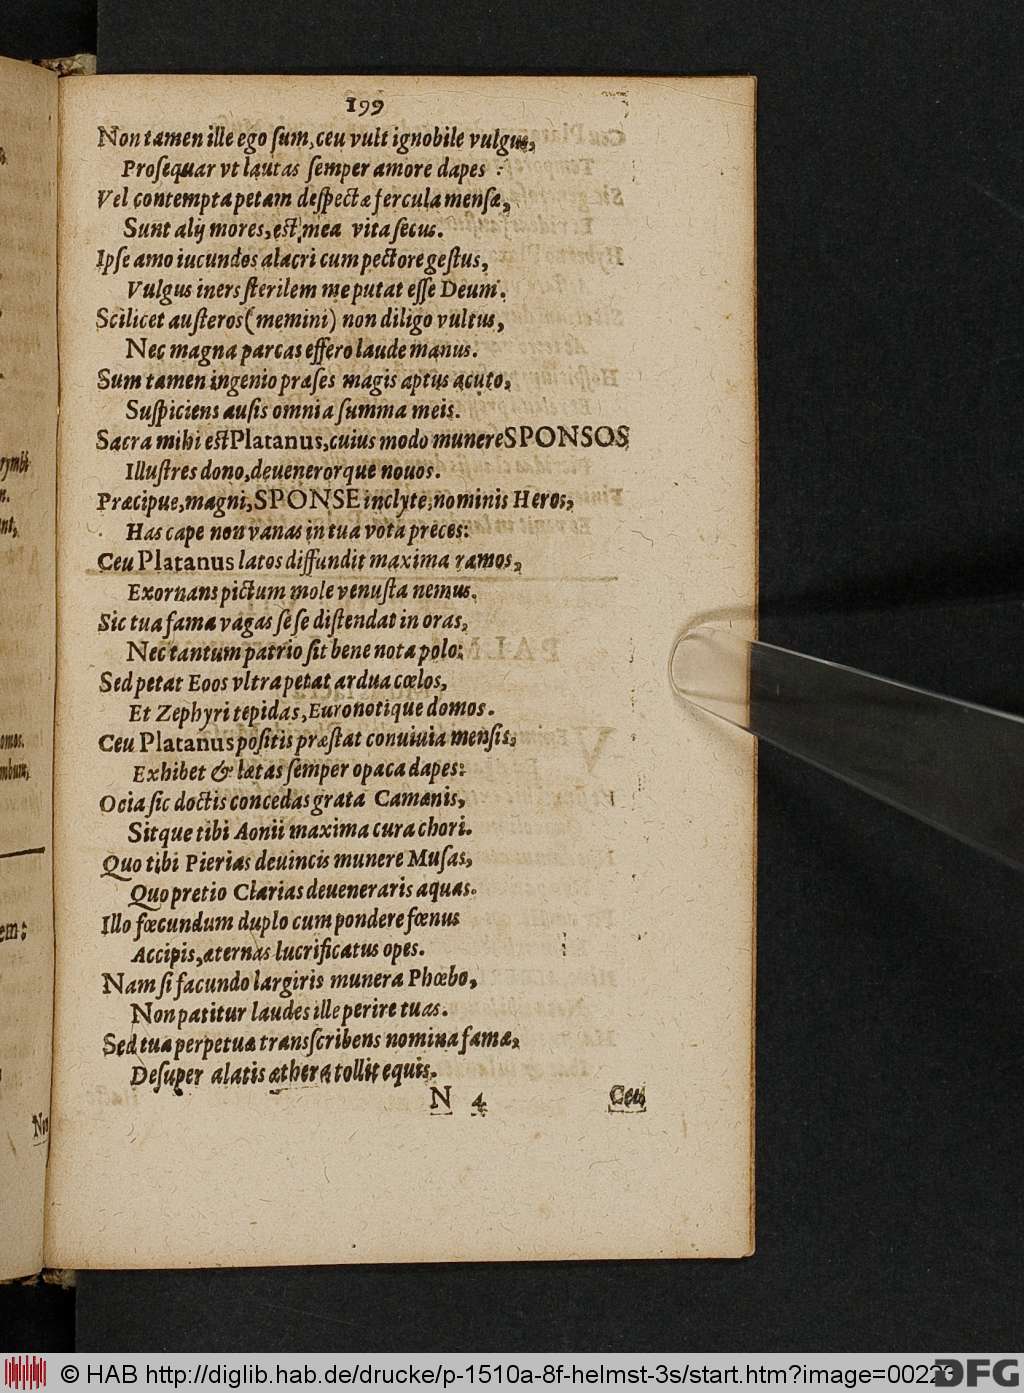 199
Non tamen ille ego ſum, ceu vult ignobile vulgus,
Proſequar vt lautas ſemper amore dapes:
Vel contempta petam deſpectæ fercula menſæ,
Sunt alij mores, est mea vita ſecus.
Ipſe amo iucundos alacri cum pectore geſtus,
Vulgus iners ſterilem me putat eſſe Deum.
Scilicet auſteros (memini) non diligo vultus,
Nec magna parcas effero laude manus.
Sum tamen ingenio præſes magis aptus acuto,
Suſpiciens auſis omnia ſumma meis.
Sacra mihi est Platanus, cuius modo munere SPONSOS
Illuſtres dono, deuenerorque nouos.
Præcipue, magni, SPONSE inclyte, nominis Heros,
Has cape non vanas in tua vota preces:
Ceu Platanus latos diffundit maxima ramos,
Exornans pictum mole venuſta nemus.
Sic tua fama vagas ſe ſe diſtendat in oras,
Nec tantum patrio ſit bene nota polo:
Sed petat Eoos vltra petat ardua cœlos,
Et Zephyri tepidas, Euronotique domos.
Ceu Platanus poſitis præſtat conuiuia menſis,
Exhibet & lætas ſemper opaca dapes:
Ocia ſic doctis concedas grata Camænis,
Sitque tibi Aonii maxima cura chori.
Quo tibi Pierias deuincis munere Muſas,
Quo pretio Clarias deueneraris aquas.
Illo fœcundum duplo cum pondere fœnus
Accipis, æternas lucrificatus opes.
Nam ſi facundo largiris munera Phœbo,
Non patitur laudes ille perire tuas.
Sed tua perpetuæ transſcribens nomina famæ,
Deſuper alatis æthera tollit equis.
N 4 Ceu
rymbi
n.
omos.
mbum,
em:
Nec
© HAB http://diglib.hab.de/drucke/p-1510a-8f-helmst-3s/start.htm?image=00223
DFG